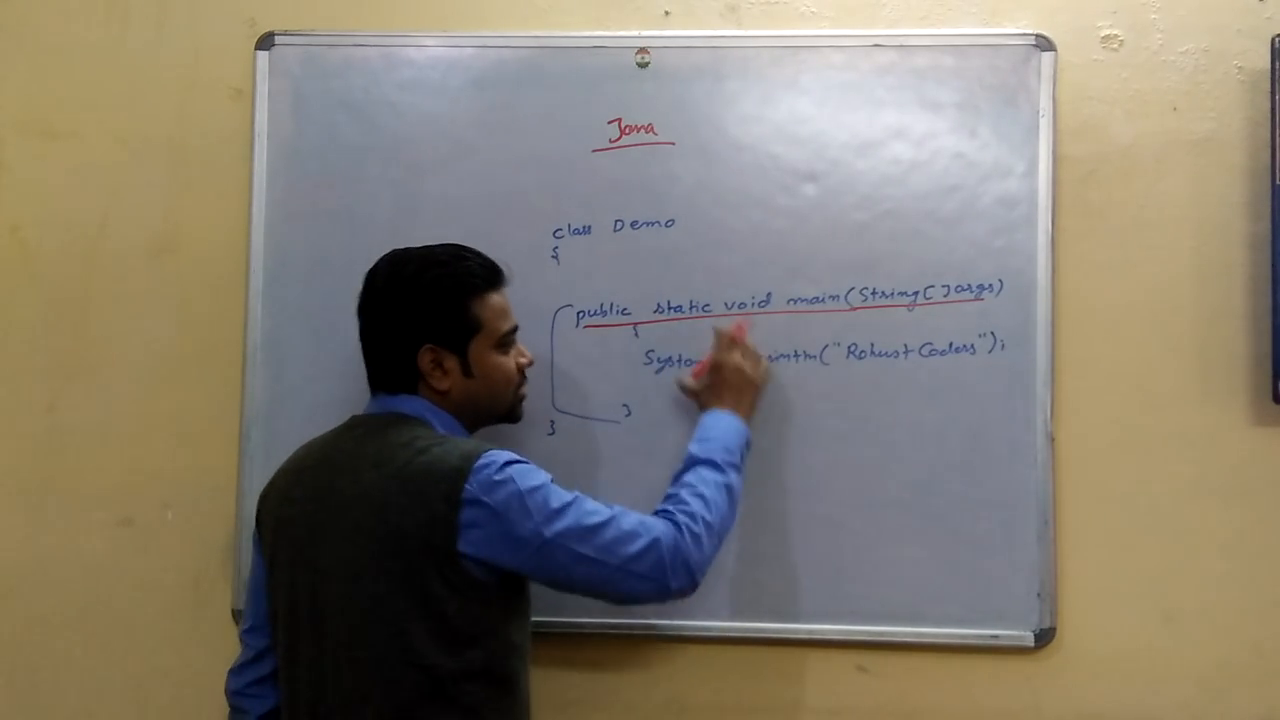 Java
class Demo
{
public static void main(String[]args)
{
System println("Robust Coders");
}
}